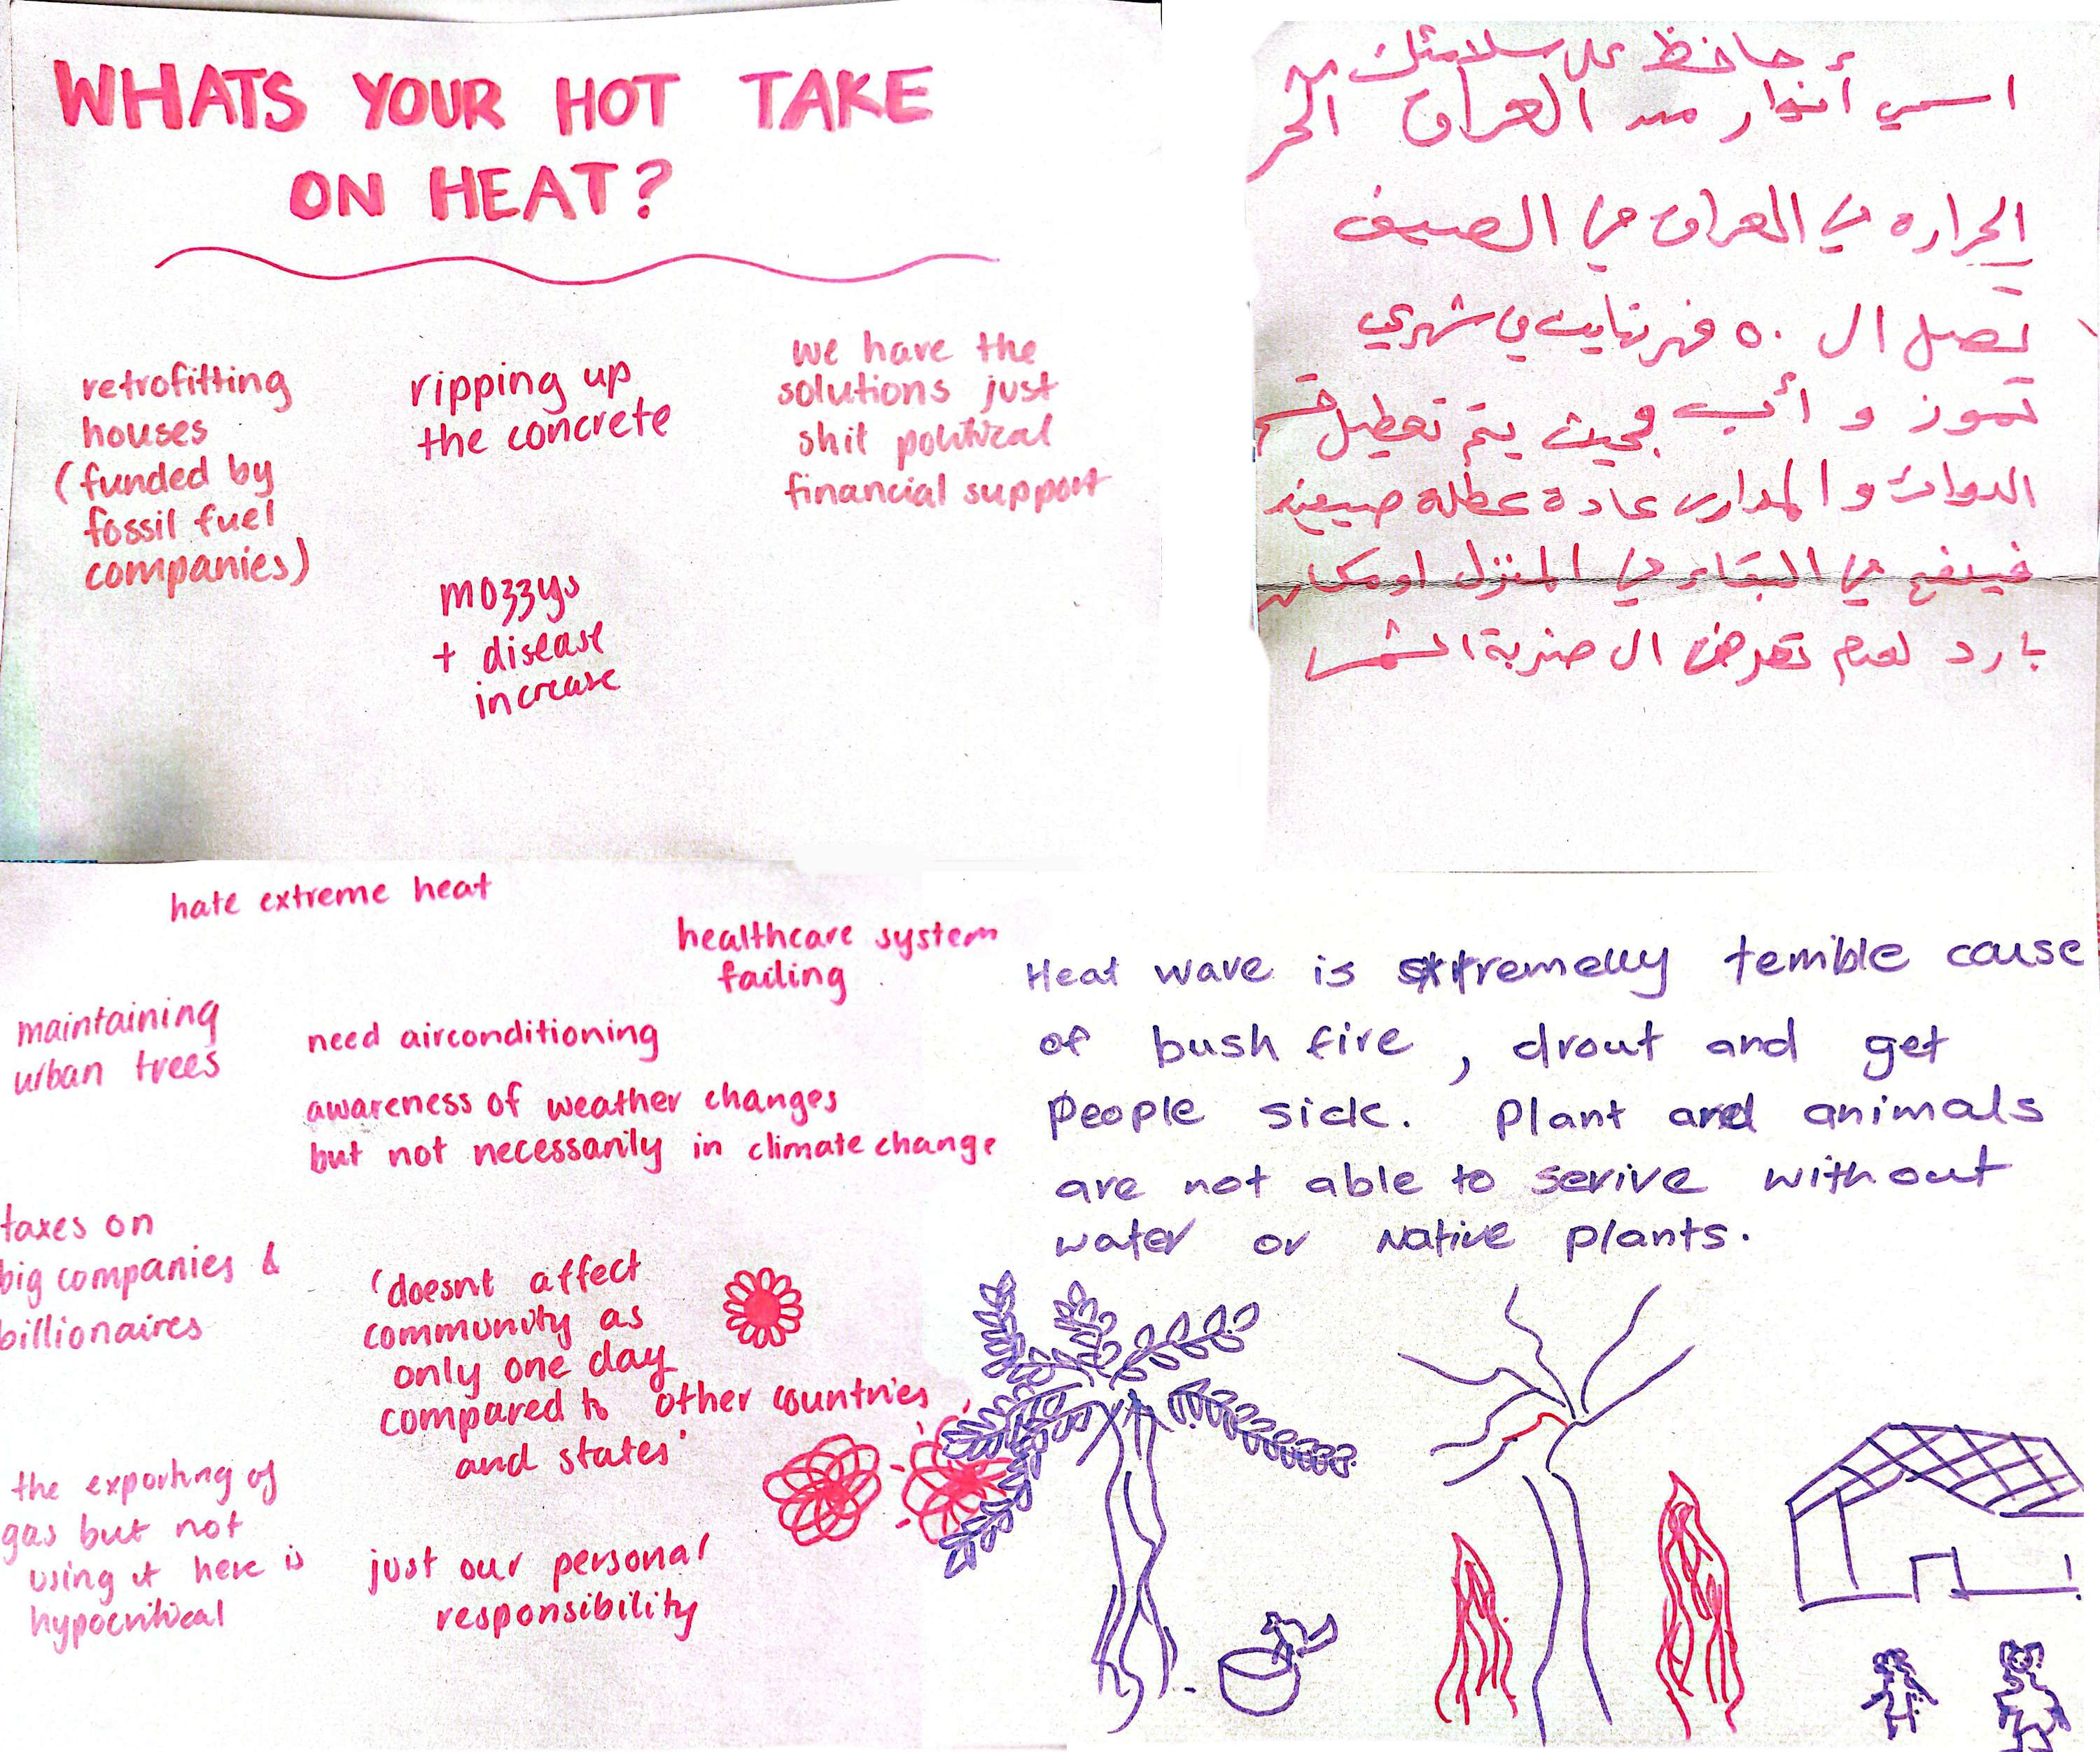 WHATS YOUR HOT TAKE
ON HEAT?
retrofitting
houses
(funded by
fossil fuel
companies)
ripping up
the concrete
mozzys
+ disease
increase
we have the
solutions just
shit political
financial support
أحافظ على سلامتك من
اسمي أنوار من العراق الحر
الحراره في العراق في الصيف
تصل ال ٥٠ فهرنايت في شهري
تموز و أب بحيث يتم تعطيل
الدوائر و المدارس عادة عطلة صيفية
في البقاء في المنزل او مكان
بارد لعدم تعرض ال ضربة الشمس
hate extreme heat
healthcare system
failing
maintaining
urban trees
need airconditioning
awareness of weather changes
but not necessarily in climate change
taxes on
big companies &
billionaires
'doesnt affect
community as
only one day
compared to other countries
and states'
the exporting of
gas but not
using it here is
hypocritical
just our personal
responsibility
Heat wave is extremelly terrible cause
of bush fire, drout and get
People sick. Plant and animals
are not able to serive without
water or Native plants.